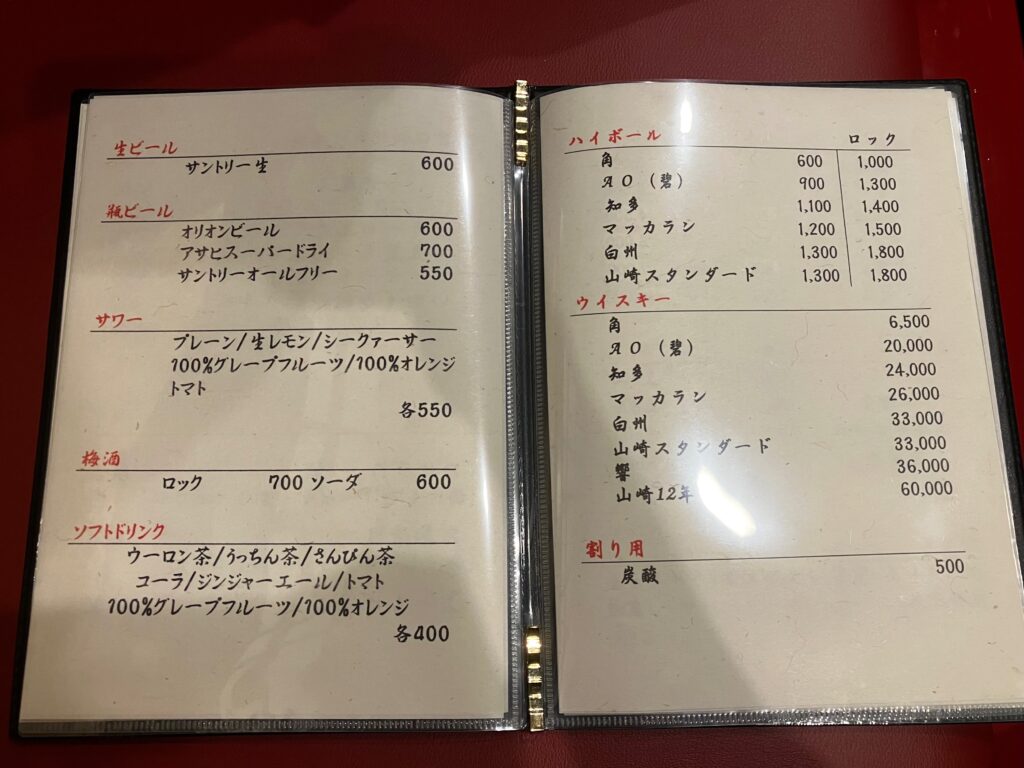 生ビール
サントリー生 600
瓶ビール
オリオンビール 600
アサヒスーパードライ 700
サントリーオールフリー 550
サワー
プレーン/生レモン/シークァーサー
100%グレープフルーツ/100%オレンジ
トマト
各550
梅酒
ロック 700 ソーダ 600
ソフトドリンク
ウーロン茶/うっちん茶/さんぴん茶
コーラ/ジンジャーエール/トマト
100%グレープフルーツ/100%オレンジ
各400
ハイボール ロック
角 600 1,000
AO（碧） 900 1,300
知多 1,100 1,400
マッカラン 1,200 1,500
白州 1,300 1,800
山崎スタンダード 1,300 1,800
ウイスキー
角 6,500
AO（碧） 20,000
知多 24,000
マッカラン 26,000
白州 33,000
山崎スタンダード 33,000
響 36,000
山崎12年 60,000
割り用
炭酸 500